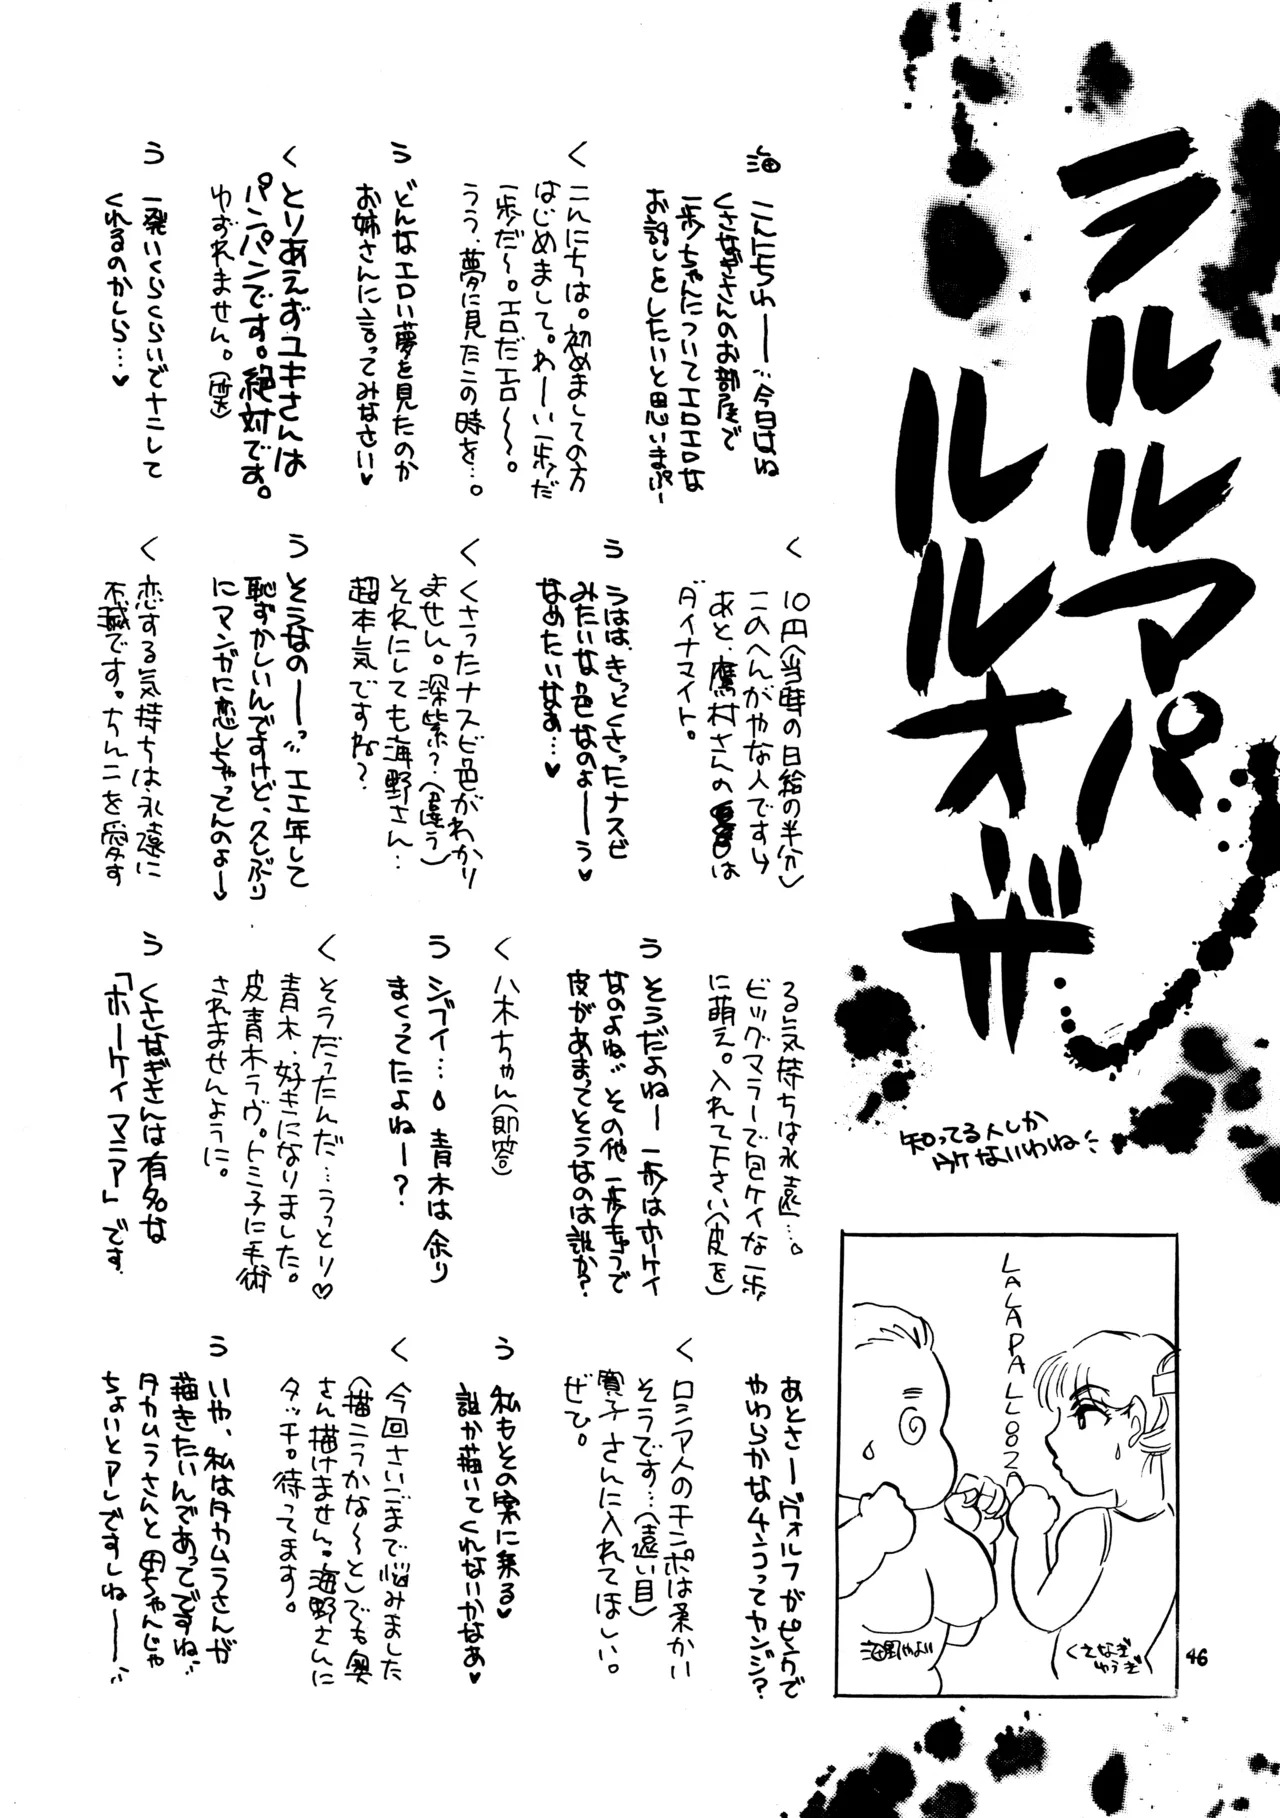 ラルルアパ
ルルルオーザ
知ってる人しか
ウケないわね
海 こんにちわーー今日はね
くさなぎさんのお部屋で
一歩ちゃんについてエロエロな
お話しをしたいと思いまぷー
く こんにちは。初めましての方
はじめまして。わーい一歩だ
一歩だ〜。エロだエロ〜〜。
うう、夢に見たこの時を…。
う どんなエロい夢を見たのか
お姉さんに言ってみなさい♥
く とりあえずユキさんは
パンパンです。絶対です。
ゆずれません。
う 一発いくらくらいでナニして
くれるのかしら…♥
く 10円(当時の日給の半分)
このへんがやな人ですけ
あと、鷹村さんの
は
ダイナマイト。
う うはは、きっとくさったナスビ
みたいな色なのよーーう♥
なめたいなあ…♥
く くさったナスビ色がわかり
ません。深紫?(違う)
それにしても海野さん…
超本気ですね?
う そうなのーーっ エエ年して
恥ずかしいんですけど、久しぶり
にマンガに恋しちゃってんのよー
く 恋する気持ちは永遠に
不滅です。ちんこを愛す
る気持ちは永遠…。
ビッグマラーで包ケイな一歩
に萌え。入れて下さい(皮を)
う そうだよねー 一歩はホーケイ
なのよね その他一歩キャラで
皮があまってそうなのは誰か?
く 八木ちゃん(即答)
う シブイ… 青木は余り
まくってたよねー?
く そうだったんだ…うっとり♡
青木、好きになりました。
皮青木ラヴ。トミ子に手術
されませんように。
う くさなぎさんは有名な
「ホーケイマニア」です
あとさーヴォルフがピンクで
やわらかなチンコってカンジ?
く ロシア人のチンポは柔かい
そうです…(遠い目)
寛子さんに入れてほしい。
ぜひ。
う 私もその案に乗る♥
誰か描いてくれないかなあ♥
く 今回さいごまで悩みました
(描こうかな〜〜と)でも奥
さん描けません。海野さんに
タッチ。待ってます。
う いや、私はタカムラさんが
描きたいんであってですね
タカムラさんと田ちゃんじゃ
ちょいとアレですしねーー
LALAPALLOOZA
海野やよい
くさなぎ
ゆうぎ
46